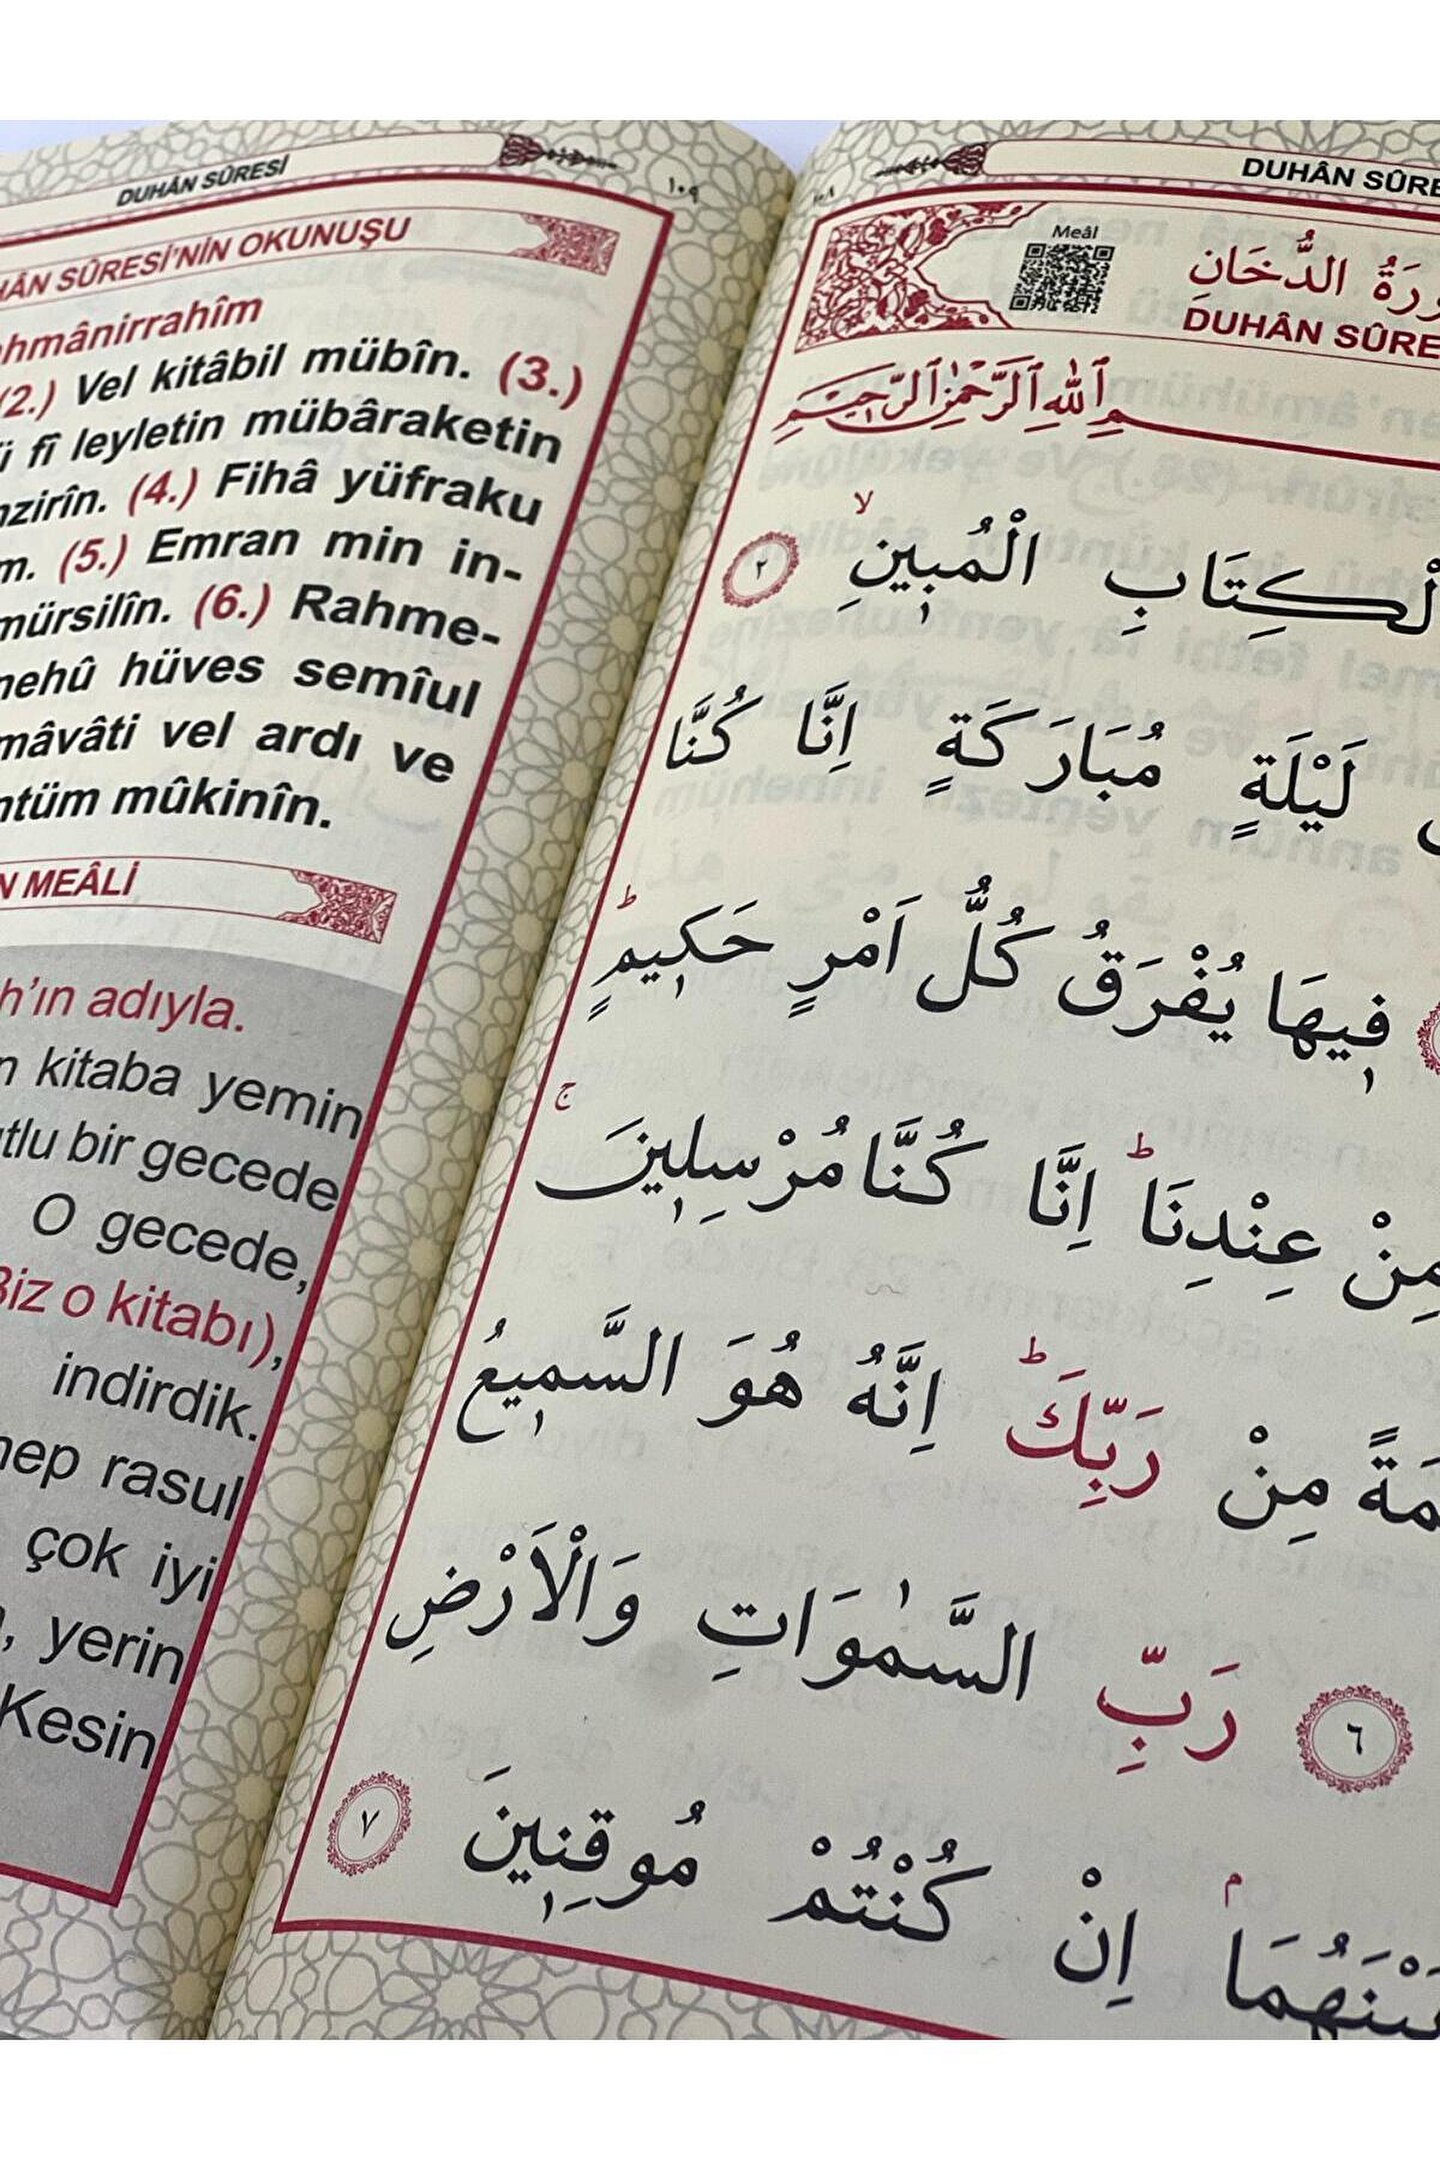 DUHÂN SÛRESİ
١٠٩
SÛRESİ'NİN OKUNUŞU
(2.) Vel kitâbil mübîn. (3.)
fî leyletin mübâraketin
(4.) Fihâ yüfraku
(5.) Emran min in-
mürsilîn. (6.) Rahme-
hüves semîul
vel ardı ve
mûkinîn.
MEÂLİ
adıyla.
kitaba yemin
bir gecede
O gecede,
o kitabı),
indirdik.
rasul
çok iyi
yerin
Kesin
DUHÂN
Meâl
الدُّخَانِ
DUHÂN
اللهِ الرَّحْمٰنِ الرَّحٖيمِ
الْمُبٖينِۙ ٢
لَيْلَةٍ مُبَارَكَةٍ اِنَّا كُنَّا
فٖيهَا يُفْرَقُ كُلُّ اَمْرٍ حَكٖيمٍۜ
مِنْ عِنْدِنَاۜ اِنَّا كُنَّا مُرْسِلٖينَۚ
مِنْ رَبِّكَۜ اِنَّهُ هُوَ السَّمٖيعُ
٦ رَبِّ السَّمٰوَاتِ وَالْاَرْضِ
اِنْ كُنْتُمْ مُوقِنٖينَ ٧